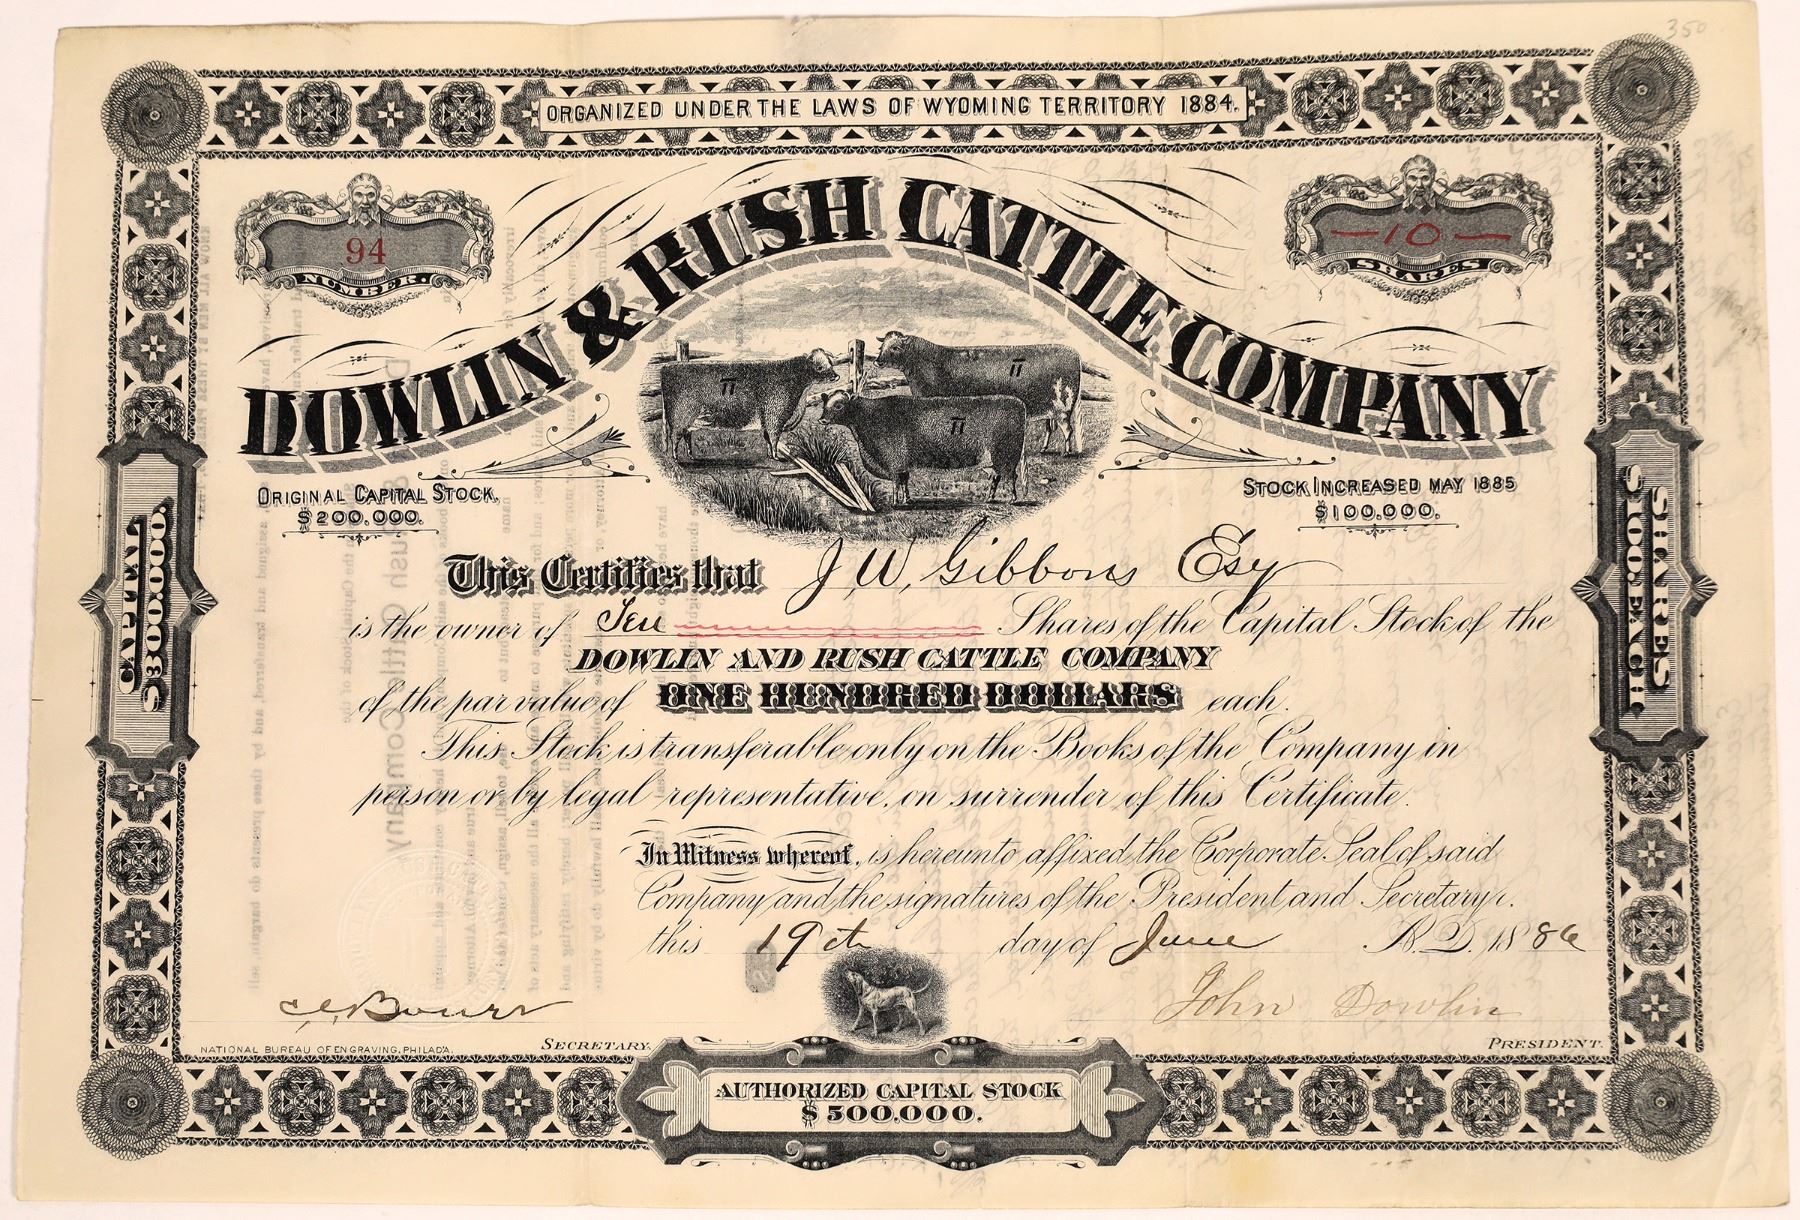 350
ORGANIZED UNDER THE LAWS OF WYOMING TERRITORY 1884.
94
NUMBER.
—10—
SHARES
DOWLIN & RUSH CATTLE COMPANY
ORIGINAL CAPITAL STOCK,
$200.000.
STOCK INCREASED MAY 1885
$100.000.
CAPITAL
$300.000.
SHARES
$100. EACH.
This Certifies that J. W. Gibbons Esq
is the owner of Ten Shares of the Capital Stock of the
DOWLIN AND RUSH CATTLE COMPANY
of the par value of ONE HUNDRED DOLLARS each.
This Stock is transferable only on the Books of the Company in
person or by legal representative, on surrender of this Certificate.
In Witness whereof, is hereunto affixed the Corporate Seal of said
Company and the signatures of the President and Secretary.
this 19th day of June A.D. 1886
John Dowlin
NATIONAL BUREAU OF ENGRAVING, PHILAD'A.
SECRETARY.
PRESIDENT.
AUTHORIZED CAPITAL STOCK
$500.000.